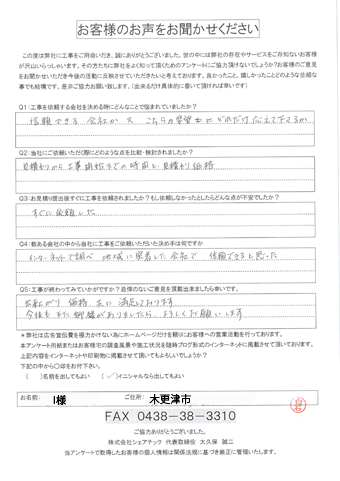 お客様のお声をお聞かせください
この度は弊社に工事をご用命いただき、誠にありがとうございました。世の中には弊社の存在やサービスをご存知ないお客様
が沢山いらっしゃいます。その方たちに弊社をよく知って頂くためのアンケートにご協力頂けないでしょうか?お客様のご意見
をお聞かせいただき今後の活動に反映させていただきたいと考えております。良かったこと、嬉しかったことどのような些細な
事でも結構です。是非ご協力お願い致します。(出来るだけ具体的に書いて頂ければ幸いです)
Q1:工事を依頼する会社を決める時にどんなことで悩まれていましたか?
信頼できる会社か又こちらの要望にどれだけ応えて下さるか
Q2:当社にご依頼いただく際にどのような点を比較・検討されましたか?
見積りから工事開始までの時間と、見積り価格
Q3:お見積り提出後すぐに工事を依頼されましたか?もし依頼しなかったとしたらどんな点が不安でしたか?
すぐに依頼した
Q4:数ある会社の中から当社に工事をご依頼いただいた決め手は何ですか
インターネットで調べ 地域に密着した会社で 信頼できると思った
Q5:工事が終わってみていかがですか?忌憚のないご意見を頂戴出来ましたら幸いです。
出来上がり 価格、共に満足しております
今後も また御縁がありましたら、よろしくお願いします
*弊社は広告宣伝費を極力かけない為にホームページだけを頼りにお客様への営業活動を行っております。
本アンケート用紙またはお客様宅の調査風景や施工状況を随時ブログ形式のインターネットに掲載させて頂いております。
上記内容をインターネットや印刷物に掲載させて頂いてもよろしいでしょうか?
下記の中から〇印をお付下さい。
( )名前を出してもよい (✓)イニシャルなら出してもよい
お名前: I様 ご住所: 木更津市
FAX 0438-38-3310
ご協力ありがとうございました。
株式会社シェアテック 代表取締役 大久保 誠二
当アンケートで取得したお客様の個人情報は関係法規に基づき厳正に管理いたします。